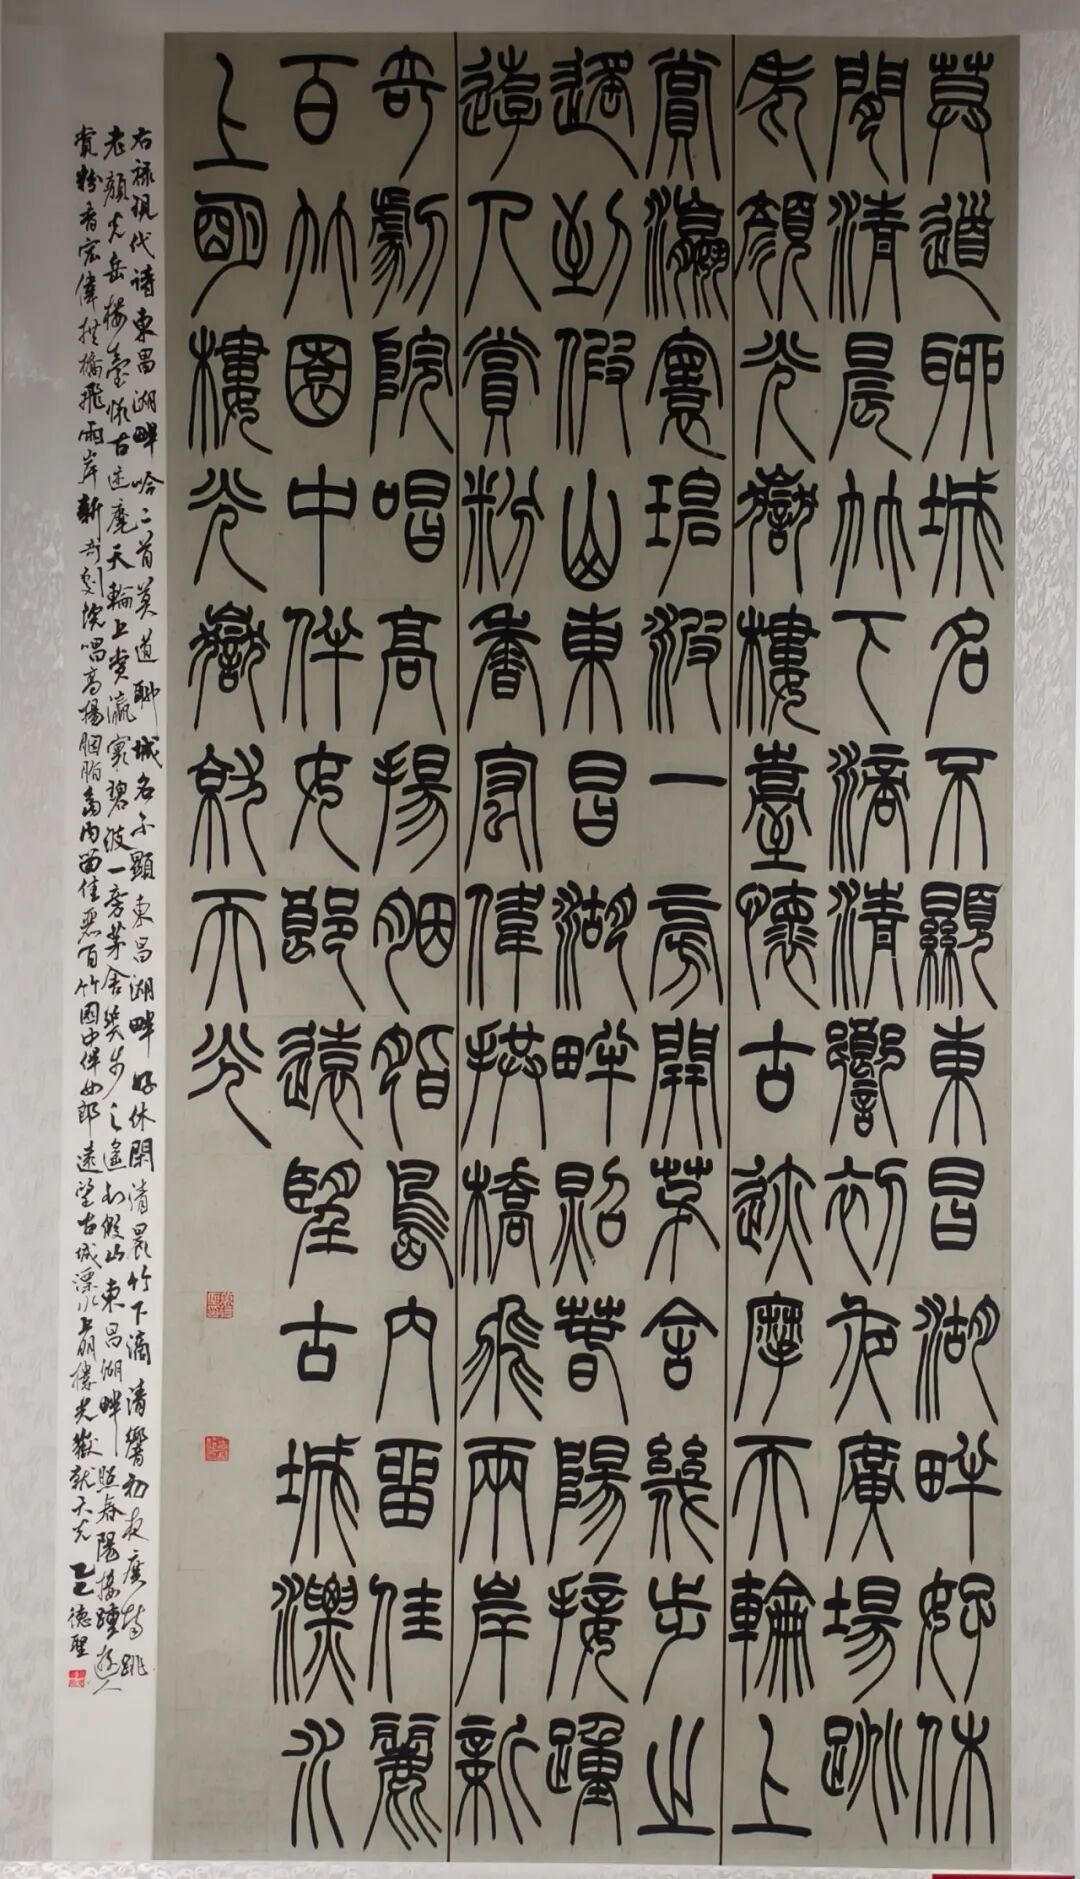 莫道聊城名不顯東昌湖畔好休
閒清晨竹下滴清響初夜廣場跳
老顏光嶽樓臺懷古迹摩天輪上
賞瀛寰碧波一旁開茅舍幾步之
遙到假山東昌湖畔照春陽接踵
遊人賞粉香宏偉拱橋飛兩岸新
奇劇院唱高揚胭脂島內留佳麗
百竹園中伴女郎遠望古城漂水
上明樓光嶽就天光
右錄現代詩東昌湖畔吟二首莫道聊城名不顯東昌湖畔好休閑清晨竹下滴清響初夜廣場跳
老顏光岳樓臺懷古迹摩天輪上賞瀛寰碧波一旁茅舍幾步之遙到假山東昌湖畔照春陽接踵遊人
賞粉香宏偉拱橋飛兩岸新奇劇院唱高揚胭脂島內留佳麗百竹園中伴女郎遠望古城漂水上明樓光嶽就天光 乙巳德聖